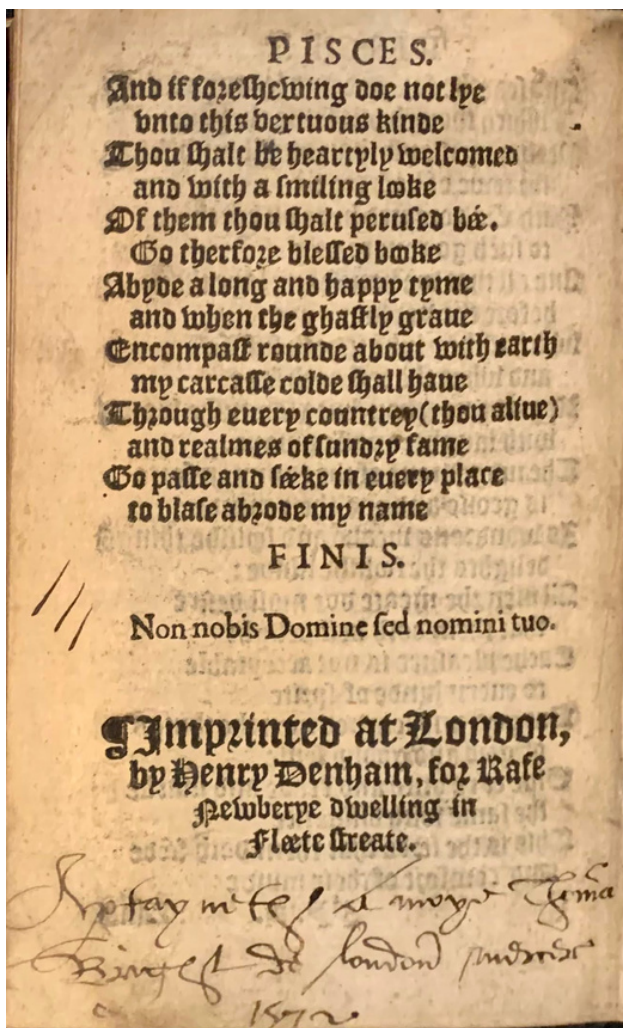 PISCES.
And if foreshewing doe not lye
vnto this vertuous kinde
Thou shalt be heartyly welcomed
and with a smiling looke
Of them thou shalt perused bée.
Go therfore blessed booke
Abyde a long and happy tyme
and when the ghastly graue
Encompast rounde about with earth
my carcasse colde shall haue
Through euery countrey (thou aliue)
and realmes of sundry fame
Go passe and séeke in euery place
to blase abrode my name
FINIS.
Non nobis Domine sed nomini tuo.
¶Imprinted at London,
by Henry Denham, for Rafe
Newberye dwelling in
Fleete streate.
Aptayneth A moye Thoma
de london mercer
1572